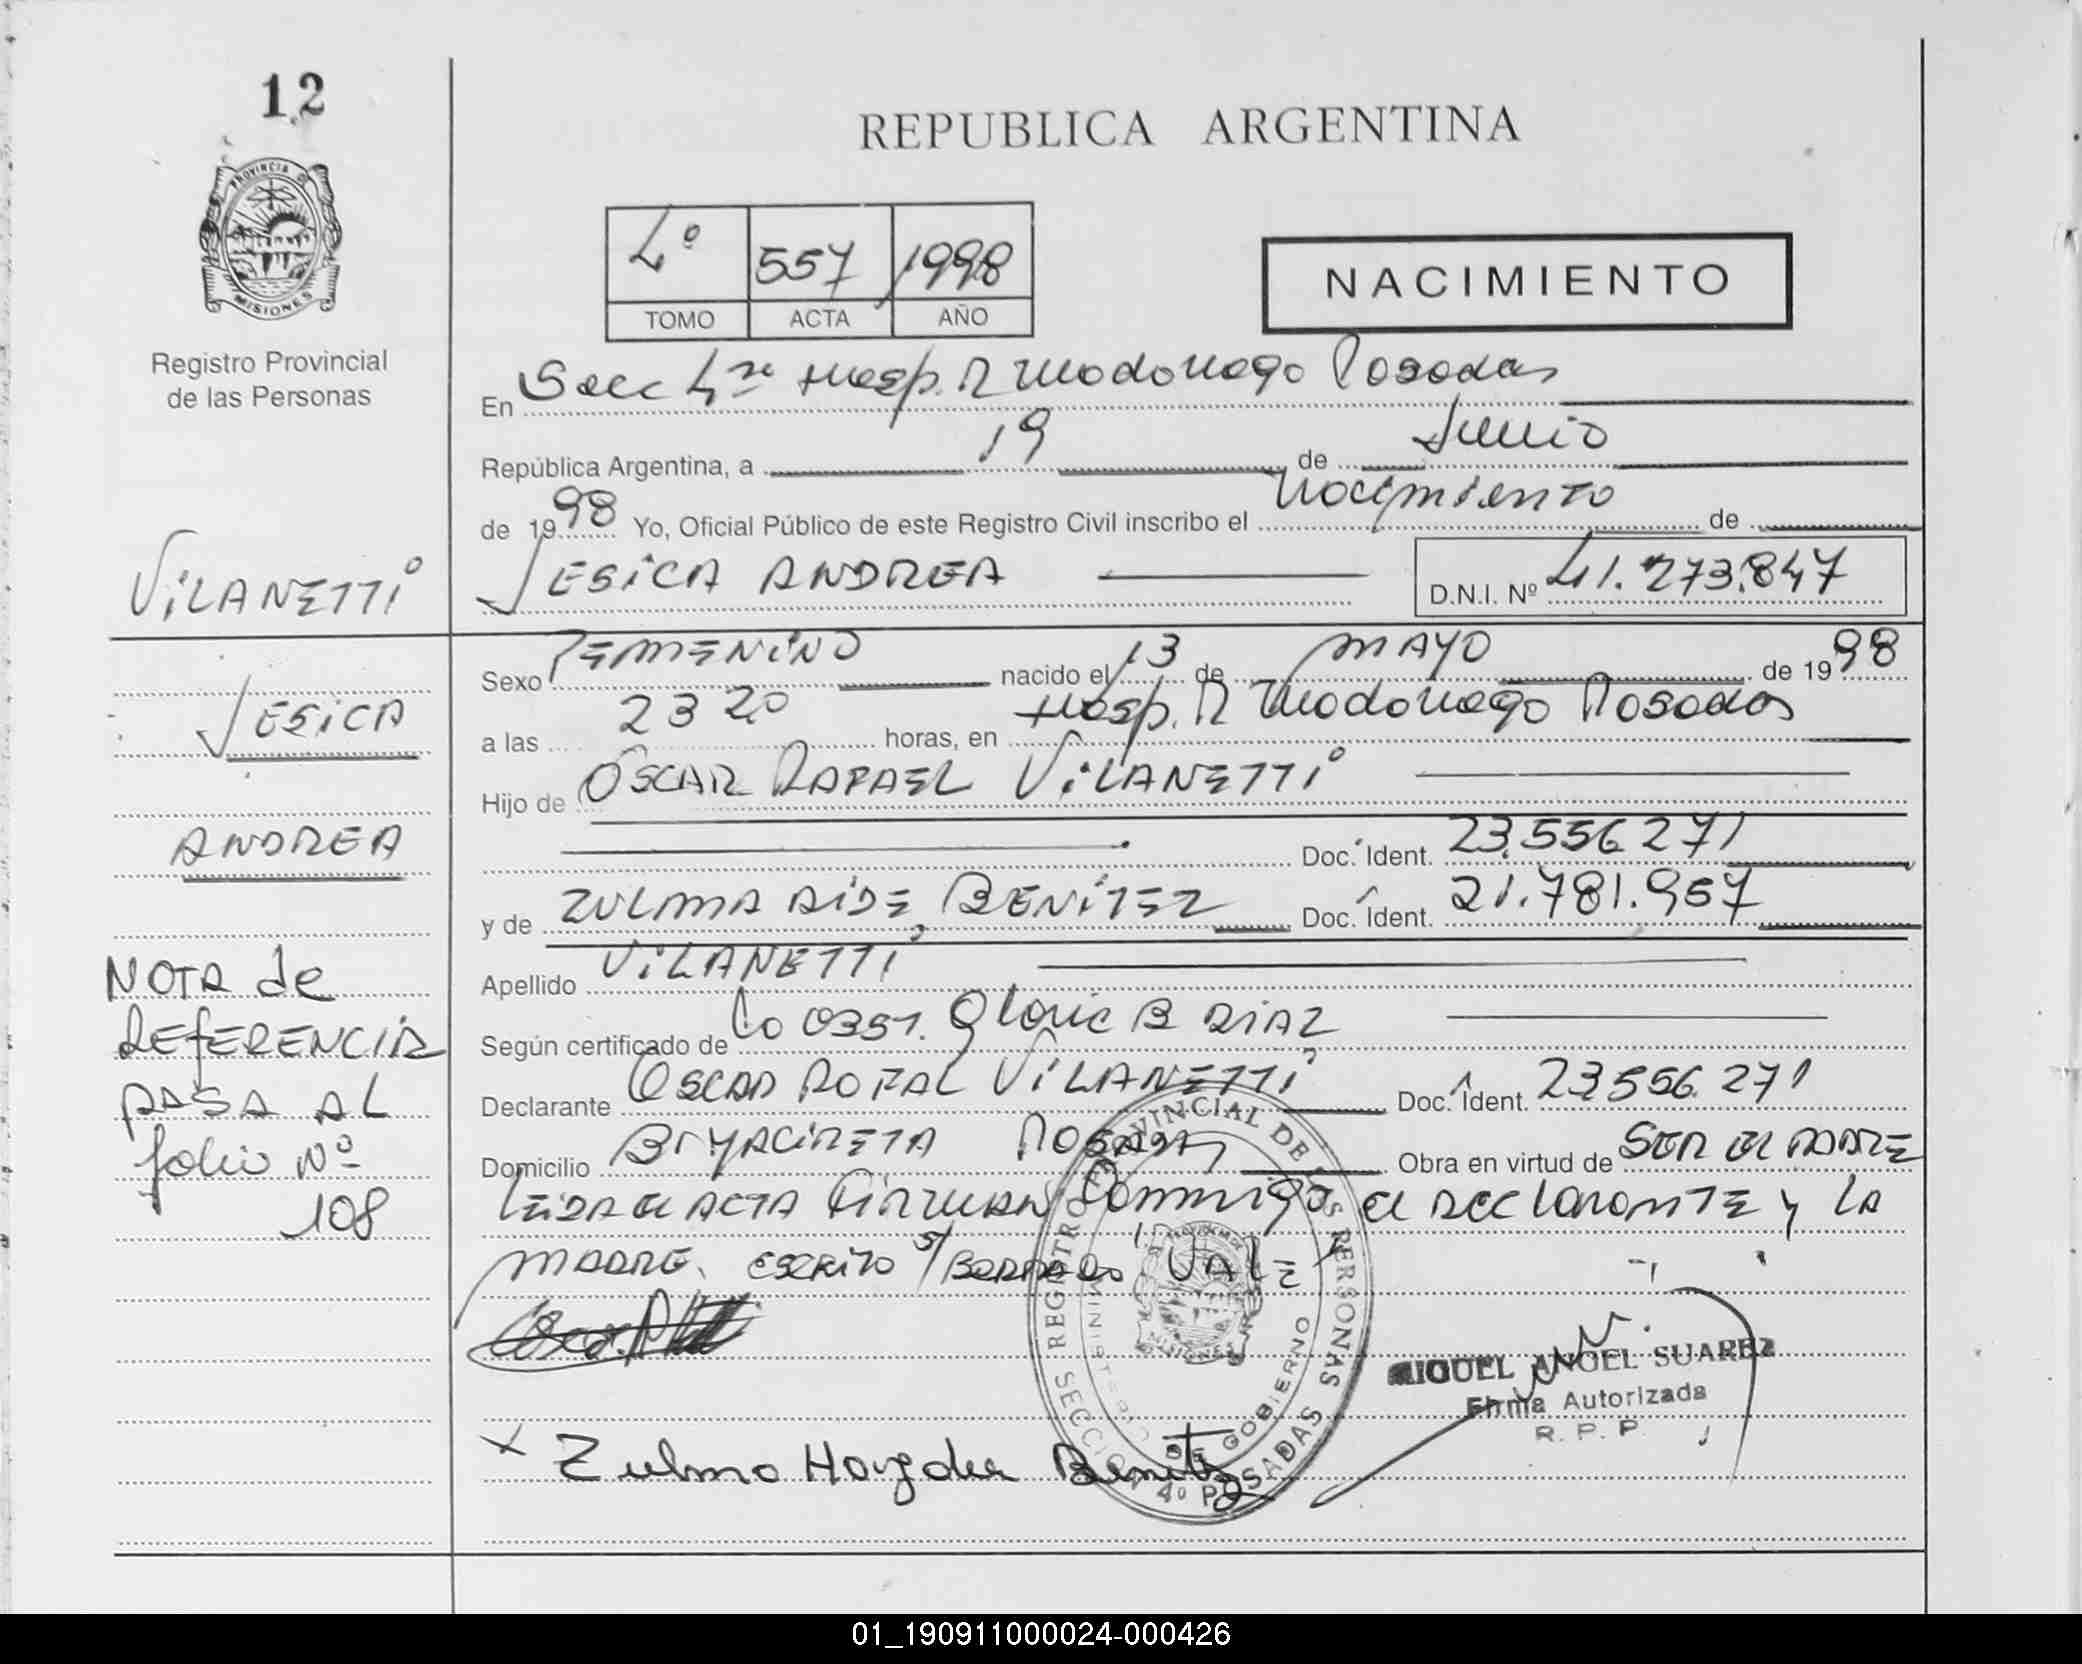 12
PROVINCIA D
MISIONES
Registro Provincial
de las Personas
REPUBLICA ARGENTINA
4º 557 1998
TOMO ACTA AÑO
NACIMIENTO
En Secc 4ª Hosp. R Madariaga Posadas
República Argentina, a 19 de Junio
de 1998 Yo, Oficial Público de este Registro Civil inscribo el Nacimiento de
JESICA ANDREA D.N.I. Nº 41.273.847
VILANETTI
JESICA
ANDREA
NOTA de
REFERENCIA
PASA AL
folio Nº
108
Sexo FEMENINO nacido el 13 de MAYO de 1998
a las 23 20 horas, en Hosp. R Madariaga Posadas
Hijo de OSCAR RAFAEL VILANETTI
Doc. Ident. 23.556 271
y de ZULMA AIDE BENITEZ Doc. Ident. 21.781.957
Apellido VILANETTI
Según certificado de Co 0351. Gloria B DIAZ
Declarante OSCAR RAFAL VILANETTI Doc. Ident. 23556.271
Domicilio Bº YACIRETA POSADAS Obra en virtud de SER EL PADRE
LEIDA EL ACTA FIRMAN Conmigo el DEClaraNTE y LA
MADRE. ESCRITO S/BORRADO "VALE"
REGISTRO PROVINCIAL DE LAS PERSONAS
MINISTERIO DE GOBIERNO
SECCION 4º POSADAS
MISIONES
MIGUEL ANGEL SUAREZ
Firma Autorizada
R. P. P.
x Zulma Haydee Benitez
01_190911000024-000426